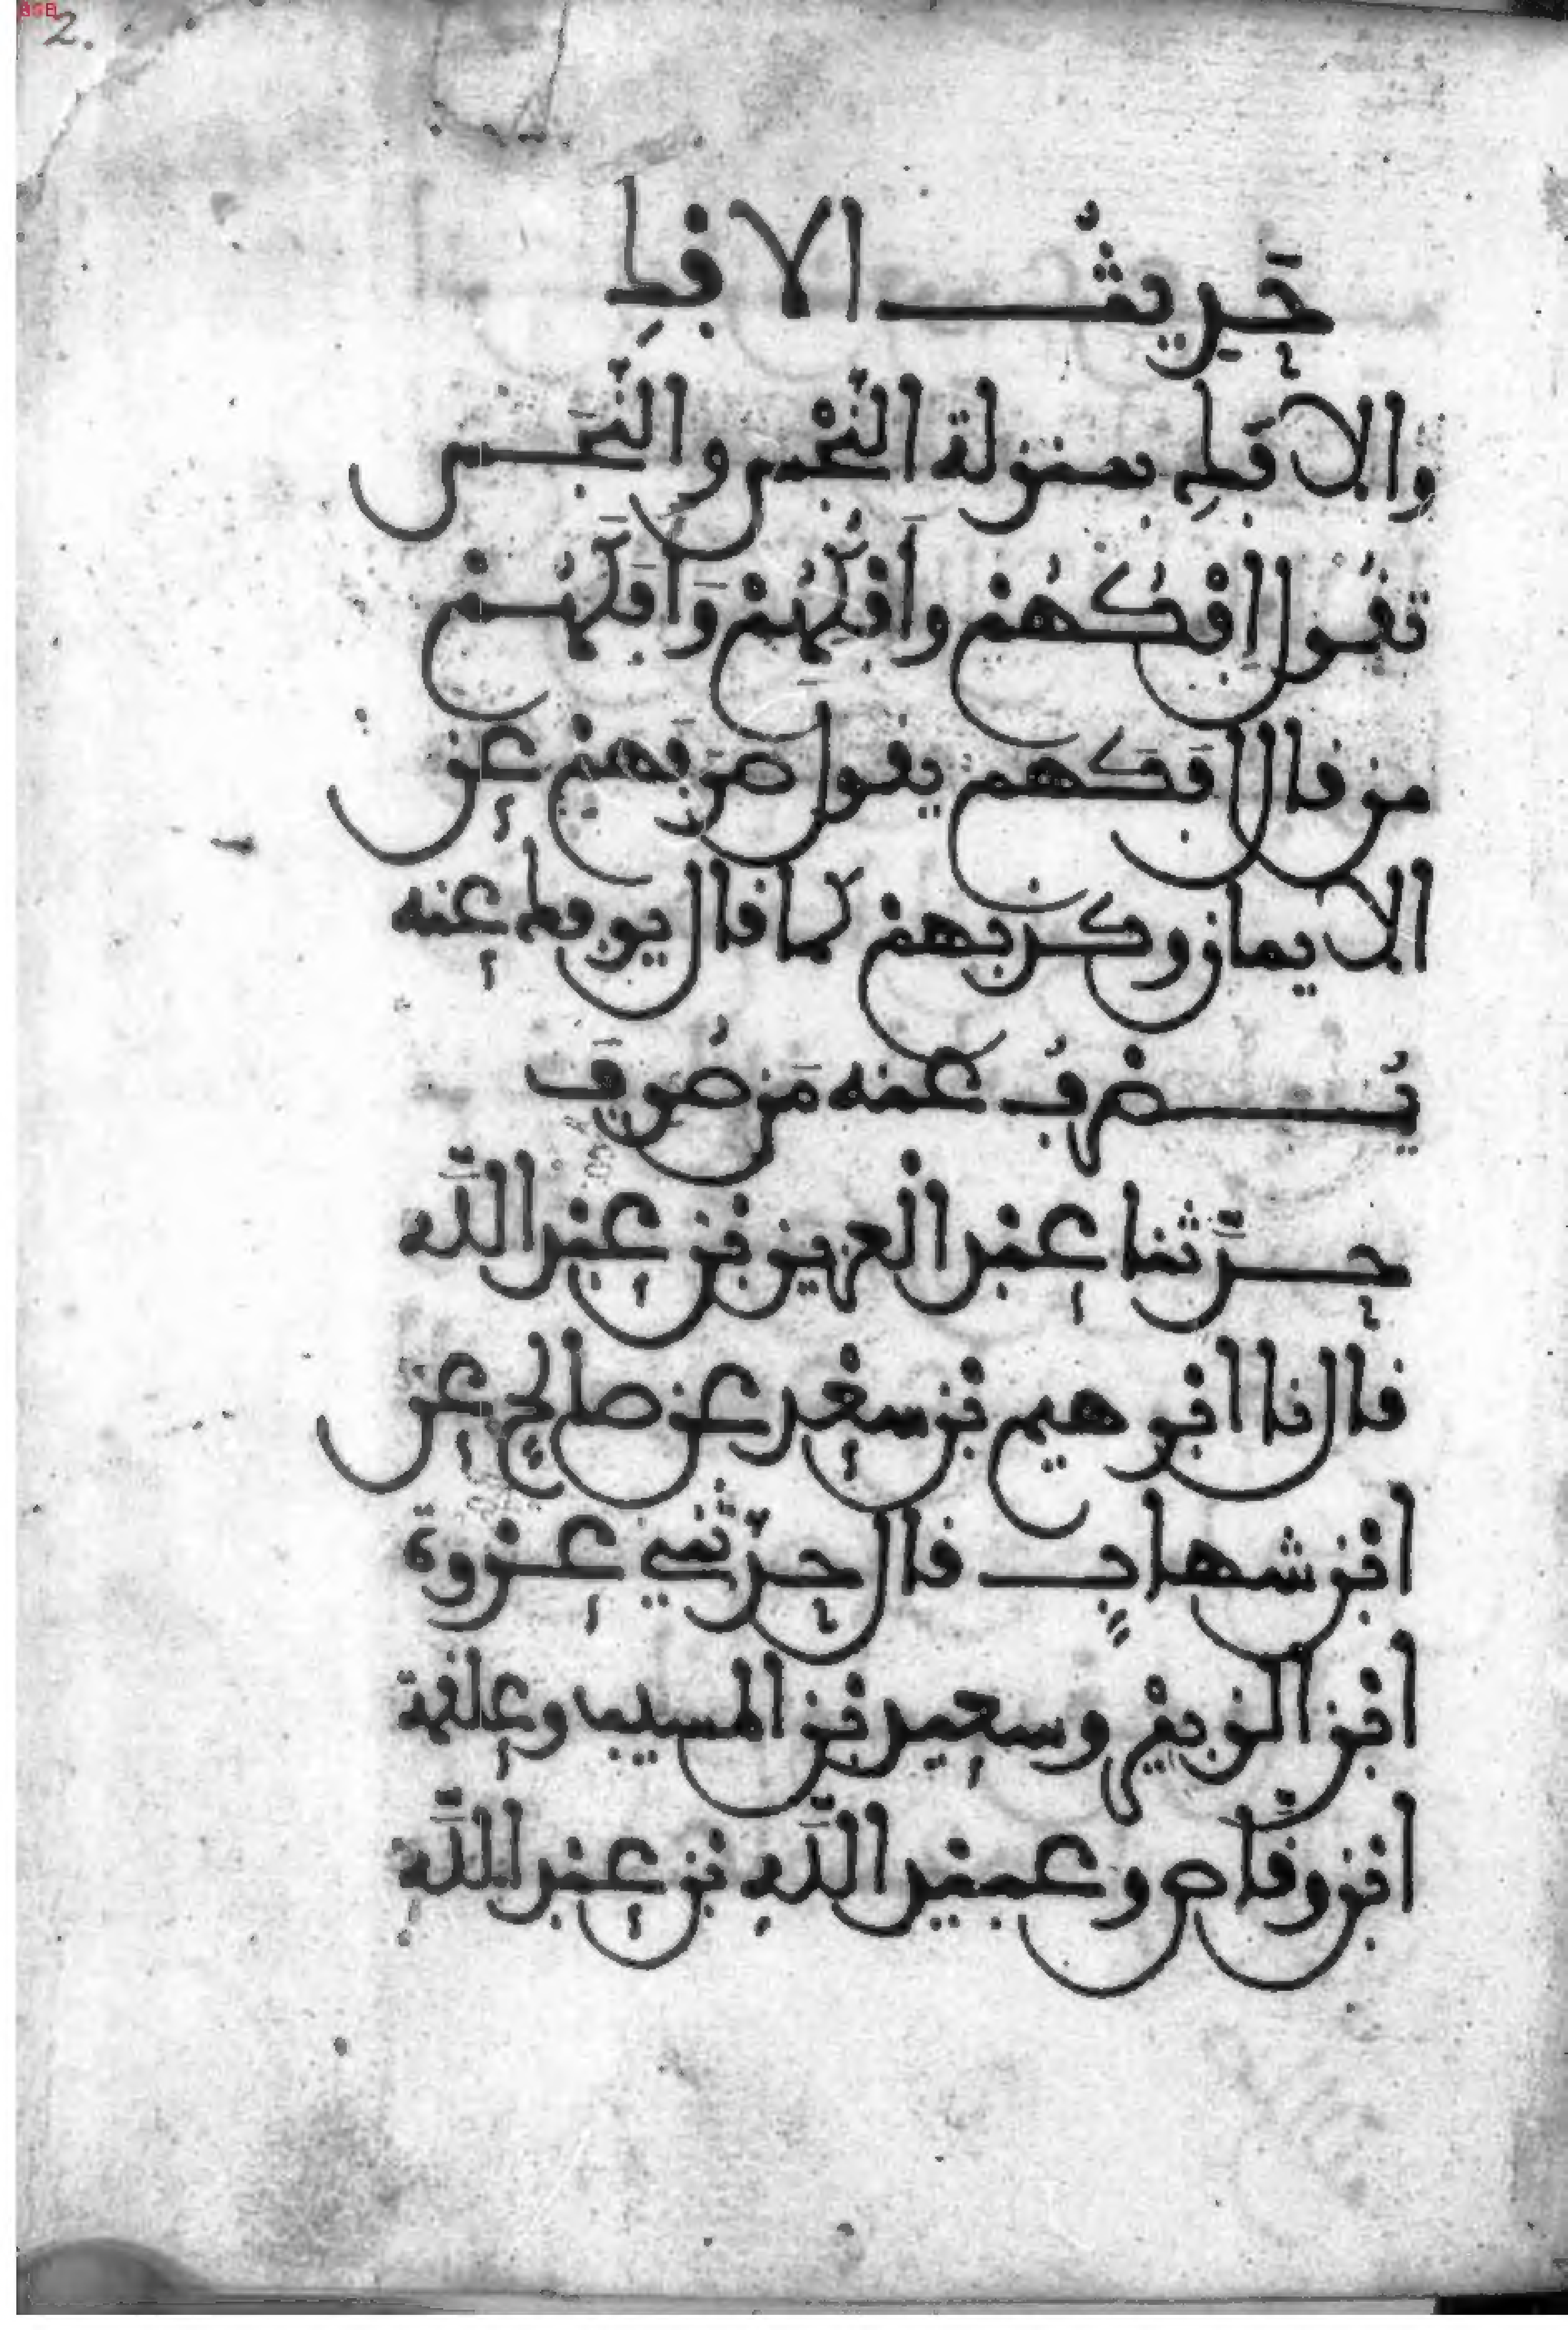 2.
حَدِيثُ الافِك
والافَكِ بمنزلة النِّجْس والنَّجَس
تقُول إِفْكُهُمْ وأَفْكُهُمْ وَأَفَكَهُمْ
من قال أَفَكَهم يقول صرَفهمْ عن
الايمان وكذبهمْ كما قال يوفك عنه
يُصْرفُ عنه مَن صُرِفَ
حدَّثنا عبد العزيز بن عبد اللَّه
قال نا ابرهيم بن سعْد عن صالحٍ عن
ابن شهابٍ قال حدّثني عروة
ابن الزبيْر وسعيد بن المسيب وعلقمة
ابن وقَّاص وعبيد اللَّهِ بن عبد اللَّه